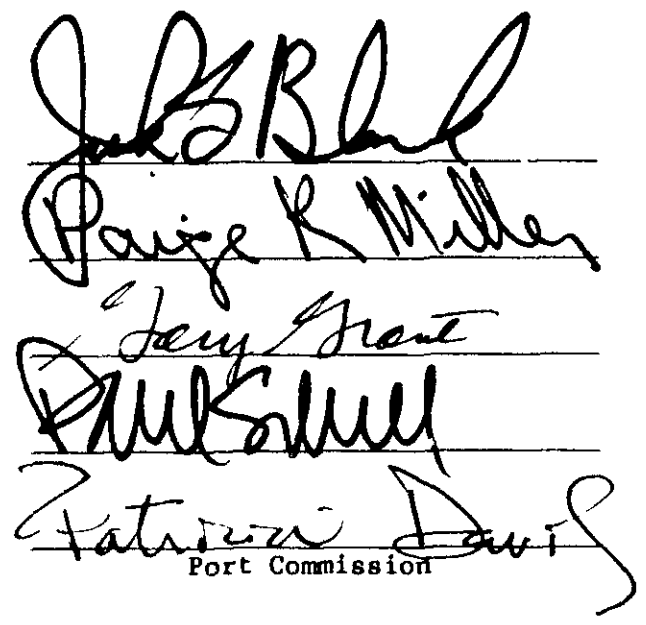 Jack Block
Paige R Miller
Gary Grant
Paul Schell
Patricia Davis
Port Commission